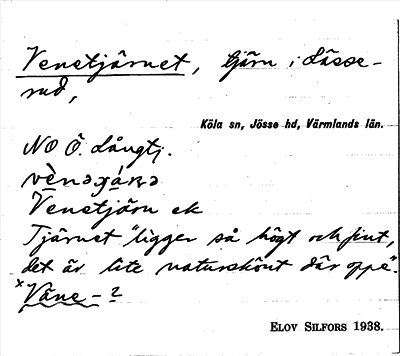 Venetjärnet, tjärn i Lässe-
rud,
Köla sn, Jösse hd, Värmlands län.
NO Ö. Långtj.
Venetjärn ek
Tjärnet "ligger så högt och fint,
det är lite naturskönt där oppe".
x Väne - ?
ELOV SILFORS 1938.